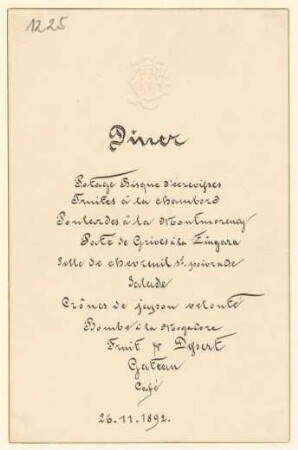 1225
Diner
Potage Bisque d'écrevisses
Truites à la chambord
Poulardes à la Montmorency
Pate de Grives à la Zingara
Selle de chevreuil sc. poivrade
Salade
Crônes de japon velouté
Bombe à la Mogadore
Fruit & Dessert
Gateau
Café
26.11.1892.